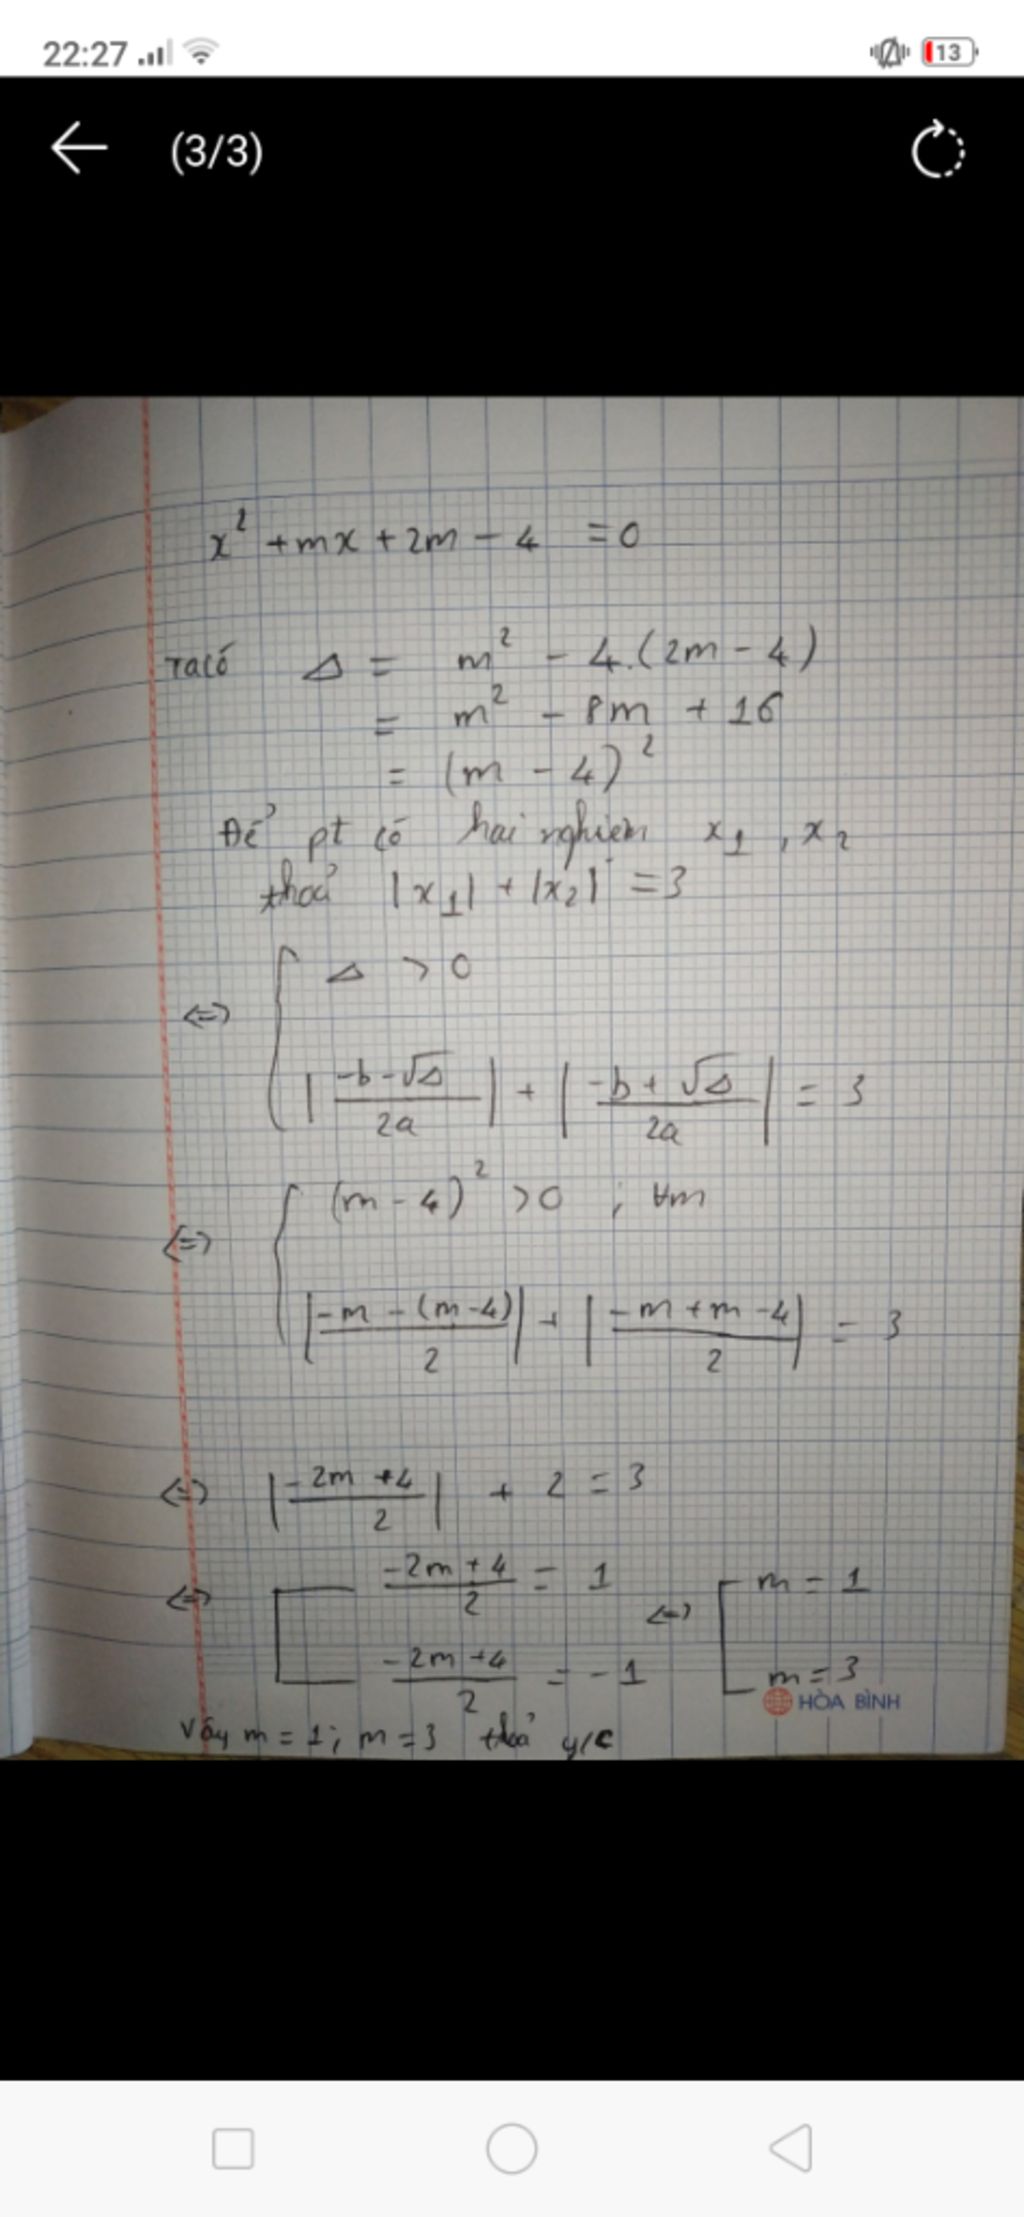 22:27
13
(3/3)
x² + mx + 2m - 4 = 0
Ta có Δ = m² - 4.(2m - 4)
= m² - 8m + 16
= (m - 4)²
Để pt có hai nghiệm x₁ , x₂
thoả |x₁| + |x₂| = 3
<=> { Δ > 0
|(-b - √Δ)/2a| + |(-b + √Δ)/2a| = 3
<=> { (m - 4)² > 0 ; ∀m
|(-m - (m - 4))/2| + |(-m + m - 4)/2| = 3
<=> |(-2m + 4)/2| + 2 = 3
<=> [ (-2m + 4)/2 = 1 <=> [ m = 1
(-2m + 4)/2 = -1 m = 3
HÒA BÌNH
Vây m = 1 ; m = 3 thoả y/c